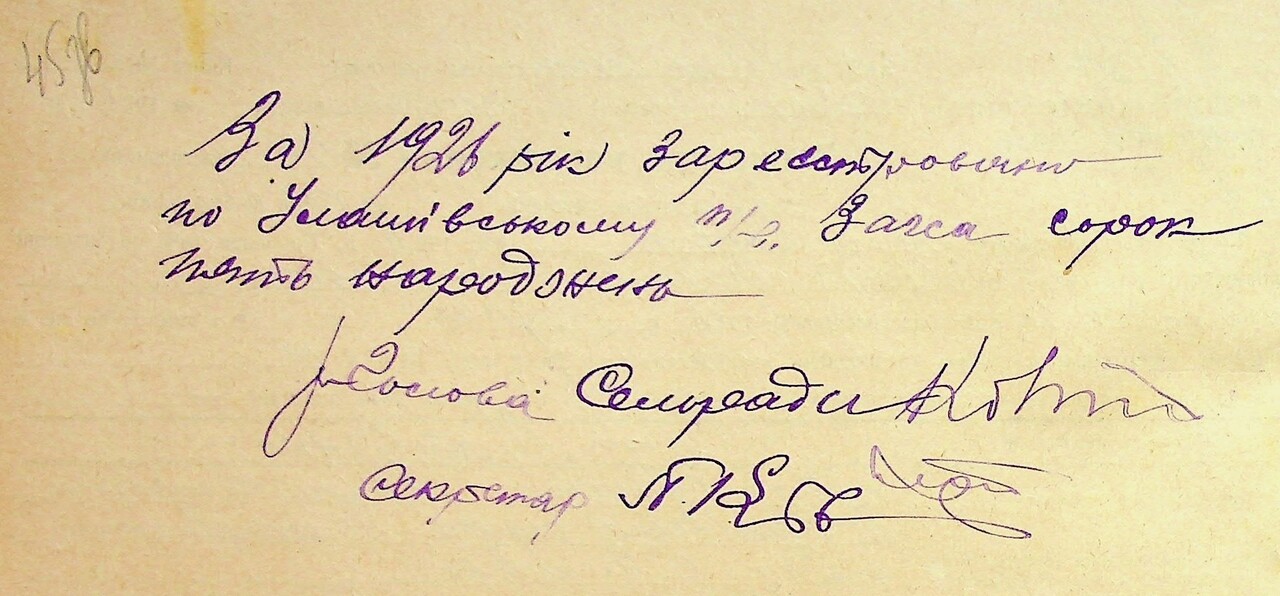 За 1926 рік зареєстровано
по Улашівському п/р. Загса сорок
пять народжень
Голова Сельради
Секретар